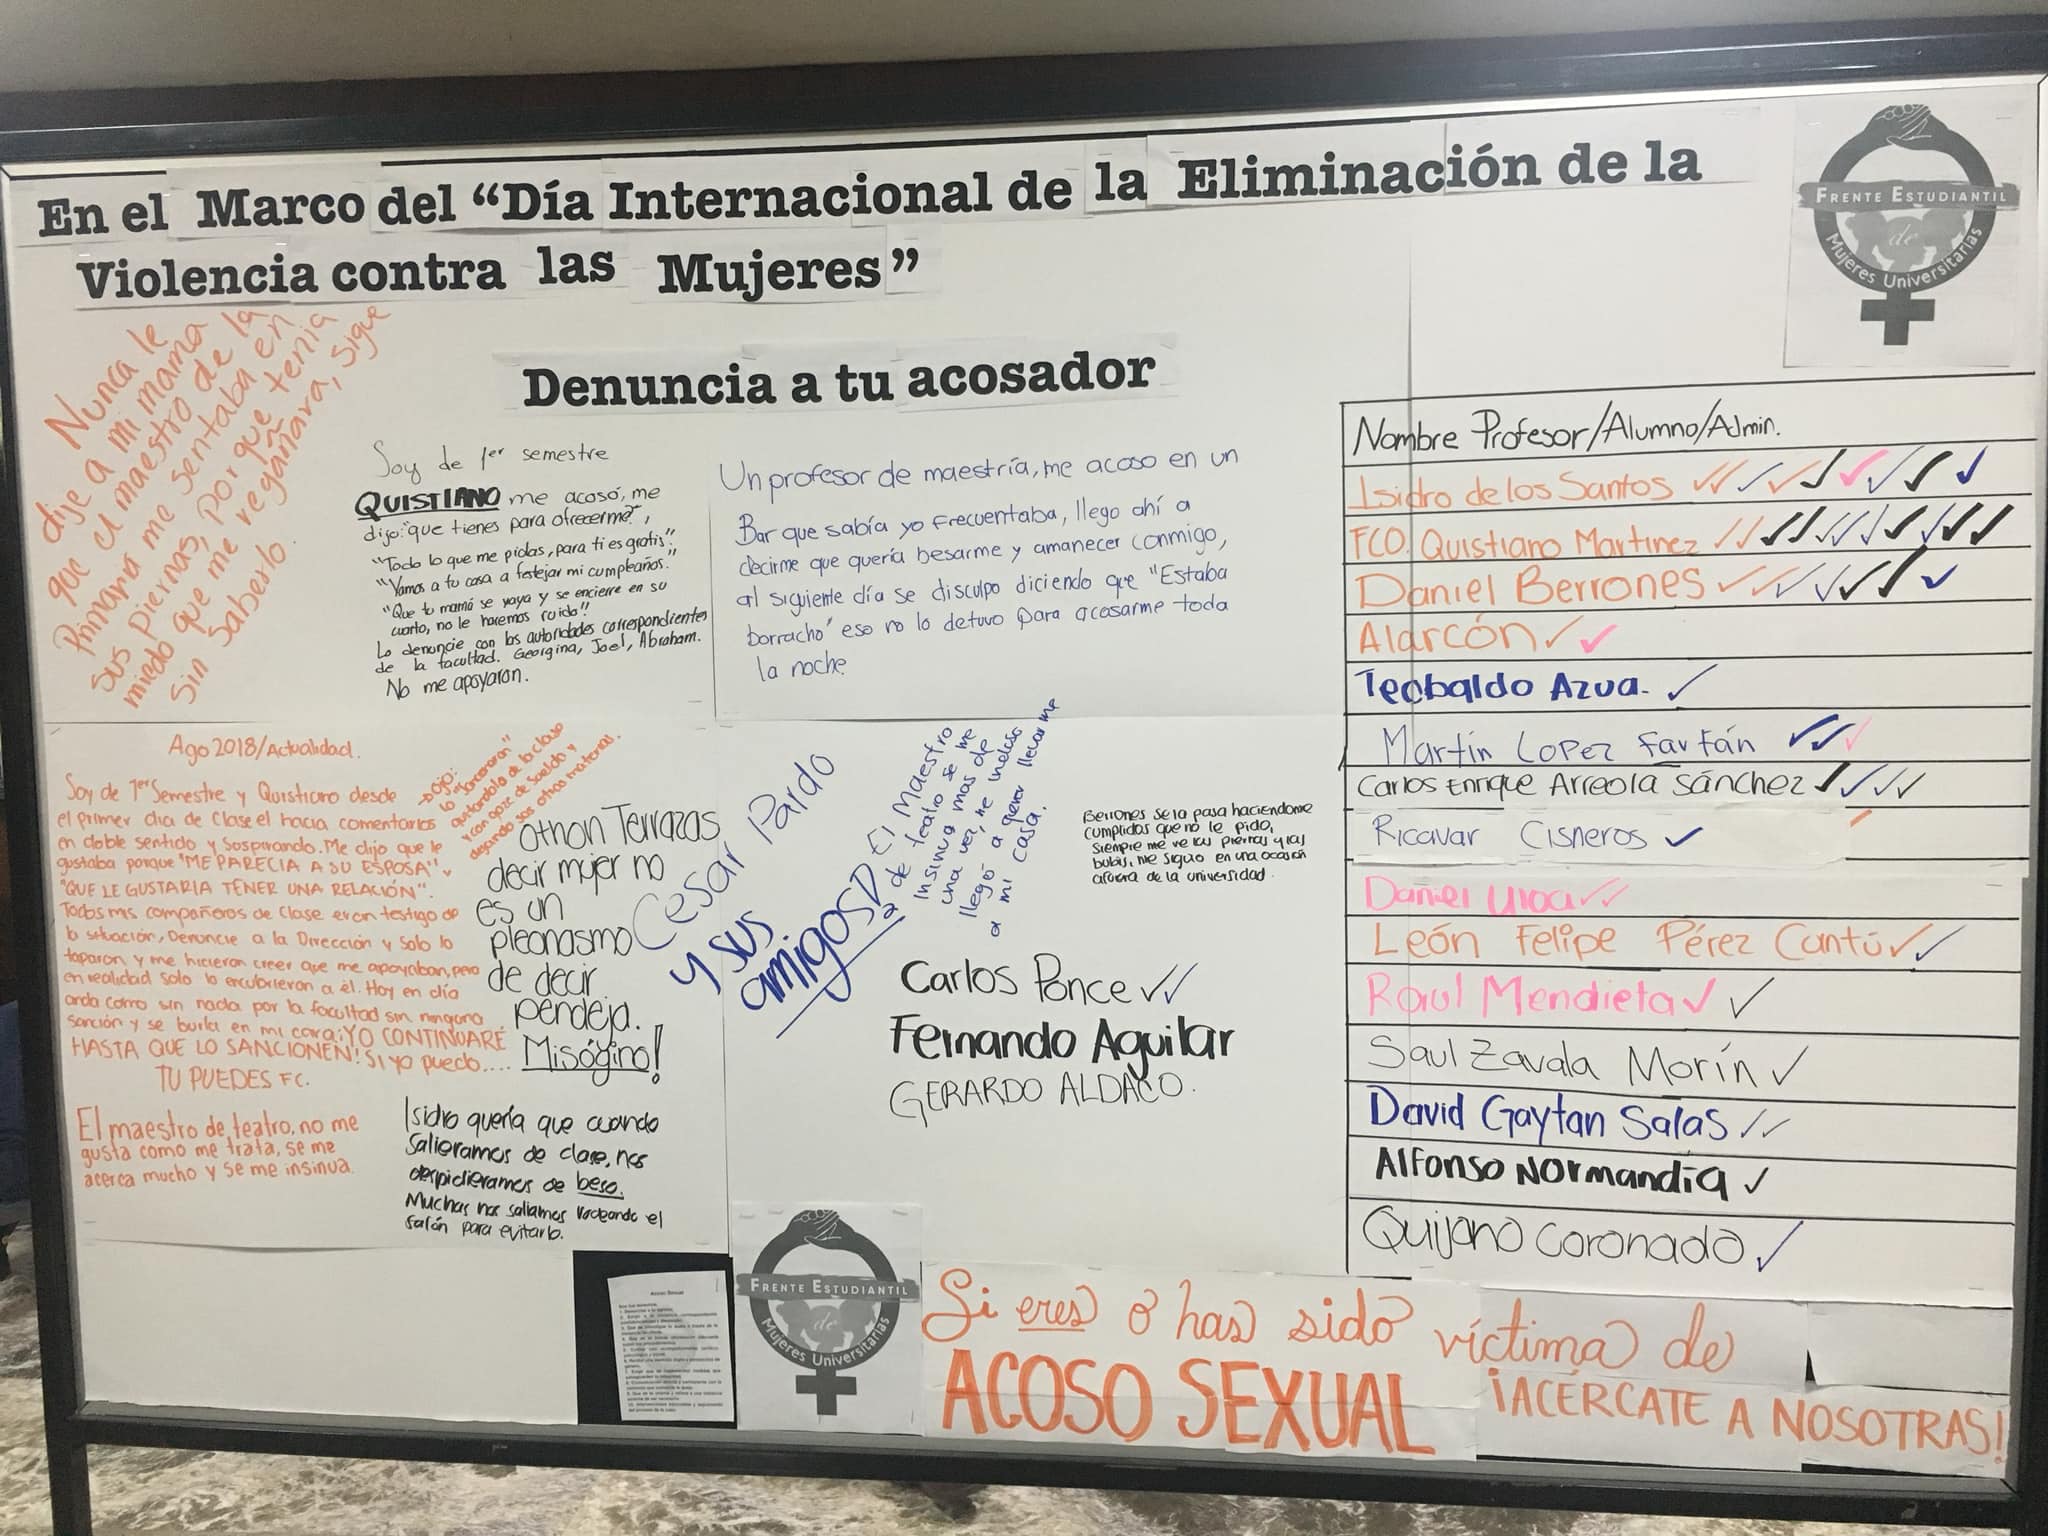 En el Marco del “Día Internacional de la Eliminación de la
Violencia contra las Mujeres”
FRENTE ESTUDIANTIL
de
Mujeres Universitarias
Denuncia a tu acosador
Nunca le
dije a mi mama
que el maestro de la
Primaria me sentaba en
sus piernas, por que tenia
miedo que me regañara, sigue
sin saberlo.
Soy de 1er semestre
QUISTIANO me acosó, me
dijo: "que tienes para ofrecerme?",
"Todo lo que me pidas, para ti es gratis".
"Vamos a tu casa a festejar mi cumpleaños."
"Que tu mamá se vaya y se encierre en su
cuarto, no le haremos ruido!!
Lo denuncie con las autoridades correspondientes
de la facultad. Georgina, Joel, Abraham.
No me apoyaron.
Un profesor de maestría, me acoso en un
Bar que sabía yo frecuentaba, llego ahí a
decirme que quería besarme y amanecer conmigo,
al siguiente día se disculpo diciendo que "Estaba
borracho" eso no lo detuvo para acosarme toda
la noche.
Ago 2018/Actualidad.
Soy de 1er Semestre y Quistiano desde
el primer dia de clase el hacia comentarios
en doble sentido y Suspirando. Me dijo que le
gustaba porque "ME PARECIA A SU ESPOSA" y
"QUE LE GUSTARIA TENER UNA RELACIÓN".
Todos mis compañeros de clase eran testigo de
la situación, Denuncie a la Dirección y solo lo
taparon y me hicieron creer que me apoyaban, pero
en realidad solo lo encubrieron a él. Hoy en día
anda como sin nada por la facultad sin ninguna
sanción y se burla en mi cara ¡YO CONTINUARÉ
HASTA QUE LO SANCIONEN! SI yo puedo....
TU PUEDES FC.
Ojo:
lo "sancionaron"
quitandolo de la clase
y con goze de sueldo y
dejando sus otras materias.
Othon Terrazas
decir mujer no
es un
pleonasmo
de decir
pendeja.
Misógino!
Cesar Pardo
y sus
amigos
El Maestro
de teatro se me
insinua mas de
una vez, me
llegó a querer llevar me
a mi casa.
Berrones se la pasa haciendome
cumplidos que no le pido,
siempre me ve las piernas y las
bubis, me siguio en una ocasión
afuera de la universidad.
Carlos Ponce ✓✓
Fernando Aguilar
GERARDO ALDACO.
El maestro de teatro, no me
gusta como me trata, se me
acerca mucho y se me insinua.
Isidro quería que cuando
salieramos de clase, nos
despidieramos de beso.
Muchas nos saliamos rodeando el
salón para evitarlo.
Nombre Profesor/Alumno/Admin.
Isidro de los Santos ✓✓✓✓✓✓✓✓✓
FCO. Quistiano Martinez ✓✓✓✓✓✓✓✓✓✓✓
Daniel Berrones ✓✓✓✓✓✓✓
Alarcón ✓✓
Teobaldo Azua. ✓
Martín Lopez Farfán ✓✓✓
Carlos Enrique Arreola Sánchez ✓✓✓✓
Ricavar Cisneros ✓
Daniel Ulloa ✓✓
León Felipe Pérez Cantú ✓✓
Raul Mendieta ✓✓
Saul Zavala Morín ✓
David Gaytan Salas ✓✓
Alfonso Normandía ✓
Quijano Coronado ✓
Acoso Sexual
FRENTE ESTUDIANTIL
de
Mujeres Universitarias
Si eres o has sido víctima de
ACOSO SEXUAL ¡ACÉRCATE A NOSOTRAS!